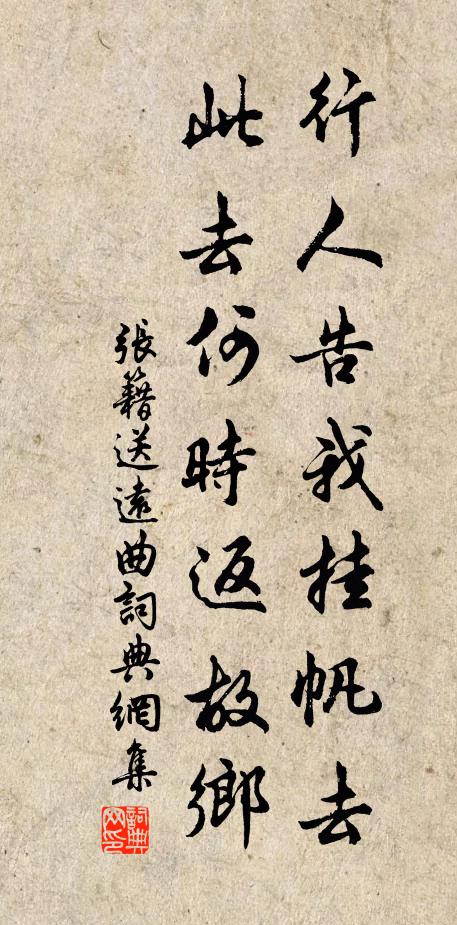 行人告我挂帆去
此去何時返故鄉
張籍送遠曲詞典網集
詞典
网印